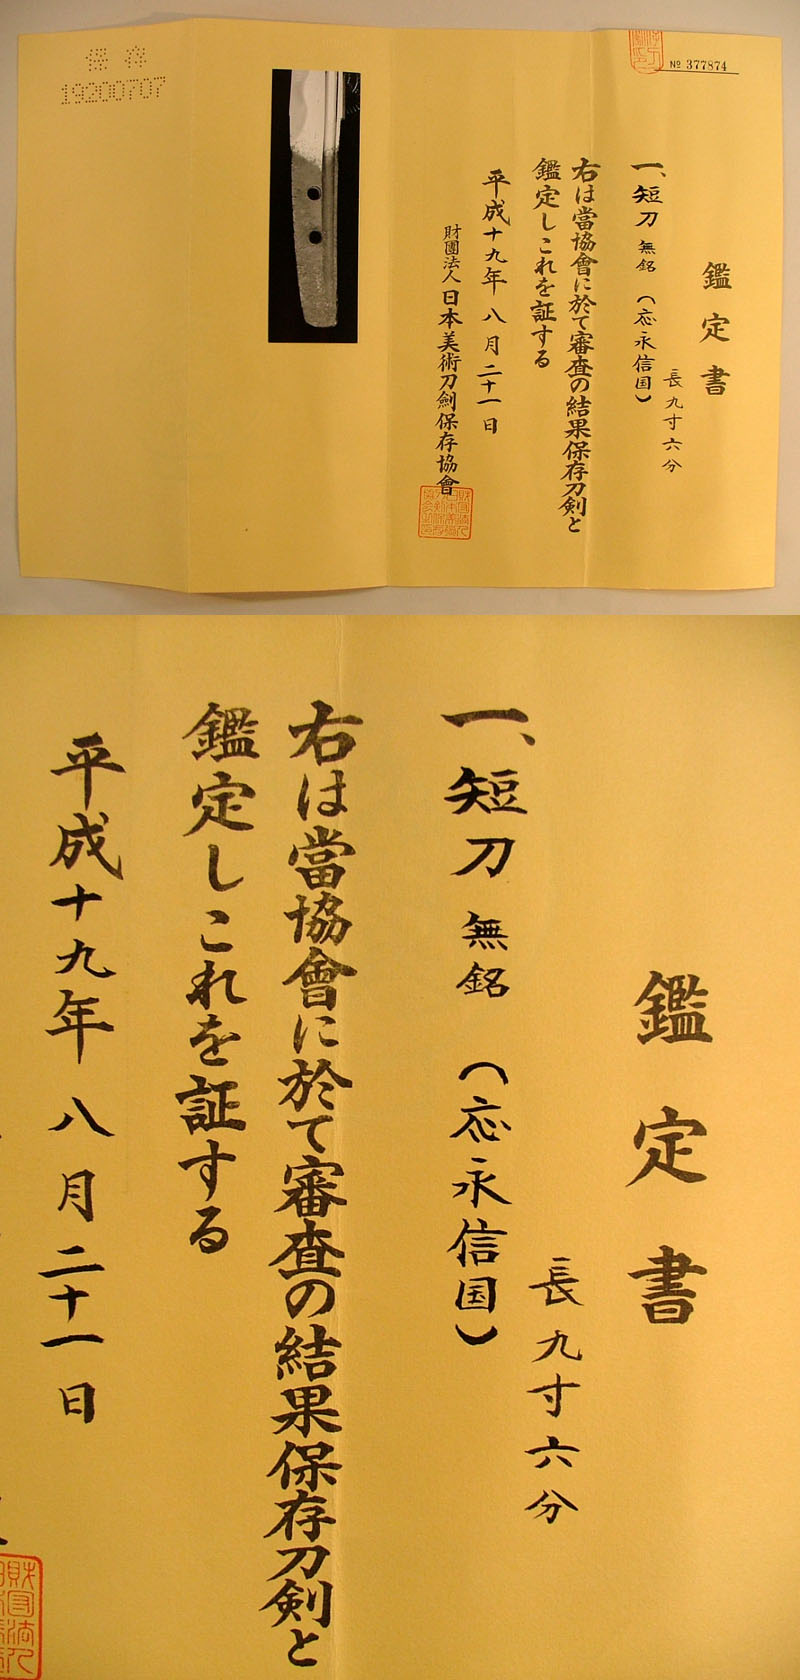 鑑定書
一、短刀 無銘 (応永信国)
長九寸六分
右は當協會に於て審査の結果保存刀剣と
鑑定しこれを証する
平成十九年 八月二十一日
財團法人日本美術刀劍保存協會
№ 377874
保存
19200707
鑑定書
一、短刀 無銘 (応永信国)
長九寸六分
右は當協會に於て審査の結果保存刀剣と
鑑定しこれを証する
平成十九年 八月二十一日